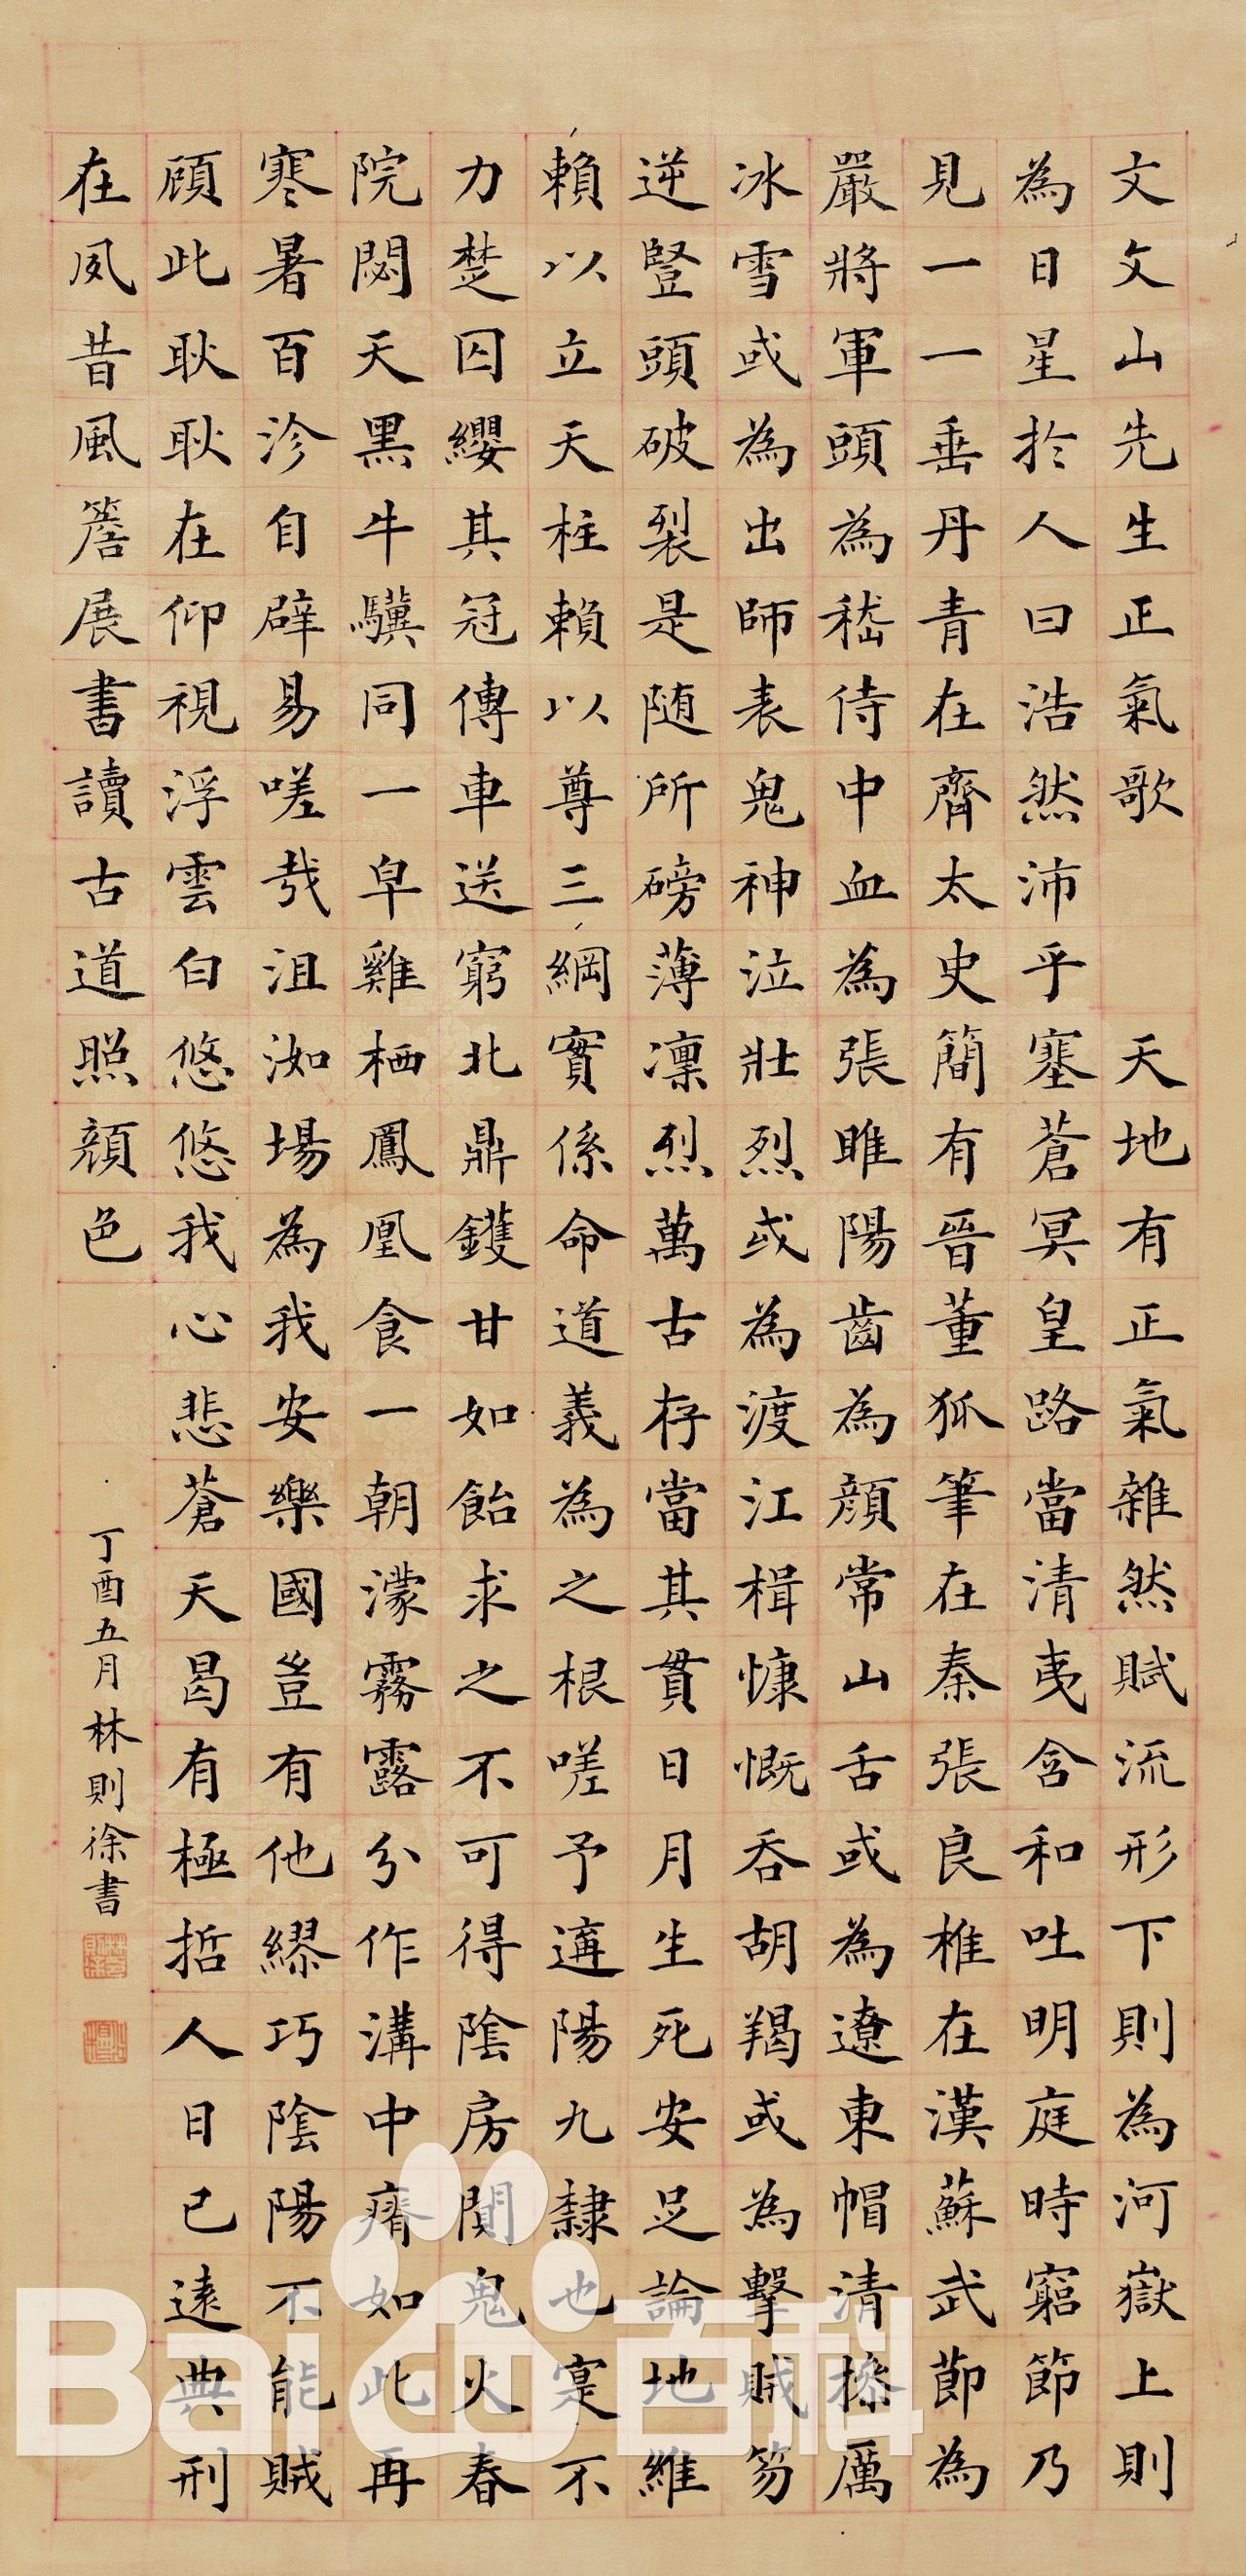 文文山先生正氣歌 天地有正氣雜然賦流形下則為河嶽上則
為日星於人曰浩然沛乎塞蒼冥皇路當清夷含和吐明庭時窮節乃
見一一垂丹青在齊太史簡有晉董狐筆在秦張良椎在漢蘇武節為
嚴將軍頭為嵇侍中血為張睢陽齒為顏常山舌或為遼東帽清操厲
冰雪或為出師表鬼神泣壯烈或為渡江楫慷慨吞胡羯或為擊賊笏
逆豎頭破裂是随所磅薄凛烈萬古存當其貫日月生死安足論地維
賴以立天柱賴以尊三綱實係命道義為之根嗟予遘陽九隸也寔不
力楚囚纓其冠傳車送窮北鼎鑊甘如飴求之不可得陰房闃鬼火春
院閟天黑牛驥同一皁雞栖鳳凰食一朝濛霧露分作溝中瘠如此再
寒暑百沴自辟易嗟哉沮洳場為我安樂國豈有他繆巧陰陽不能賊
顧此耿耿在仰視浮雲白悠悠我心悲蒼天曷有極哲人日已遠典刑
在夙昔風簷展書讀古道照顏色
丁酉五月林則徐書
Bai 百科